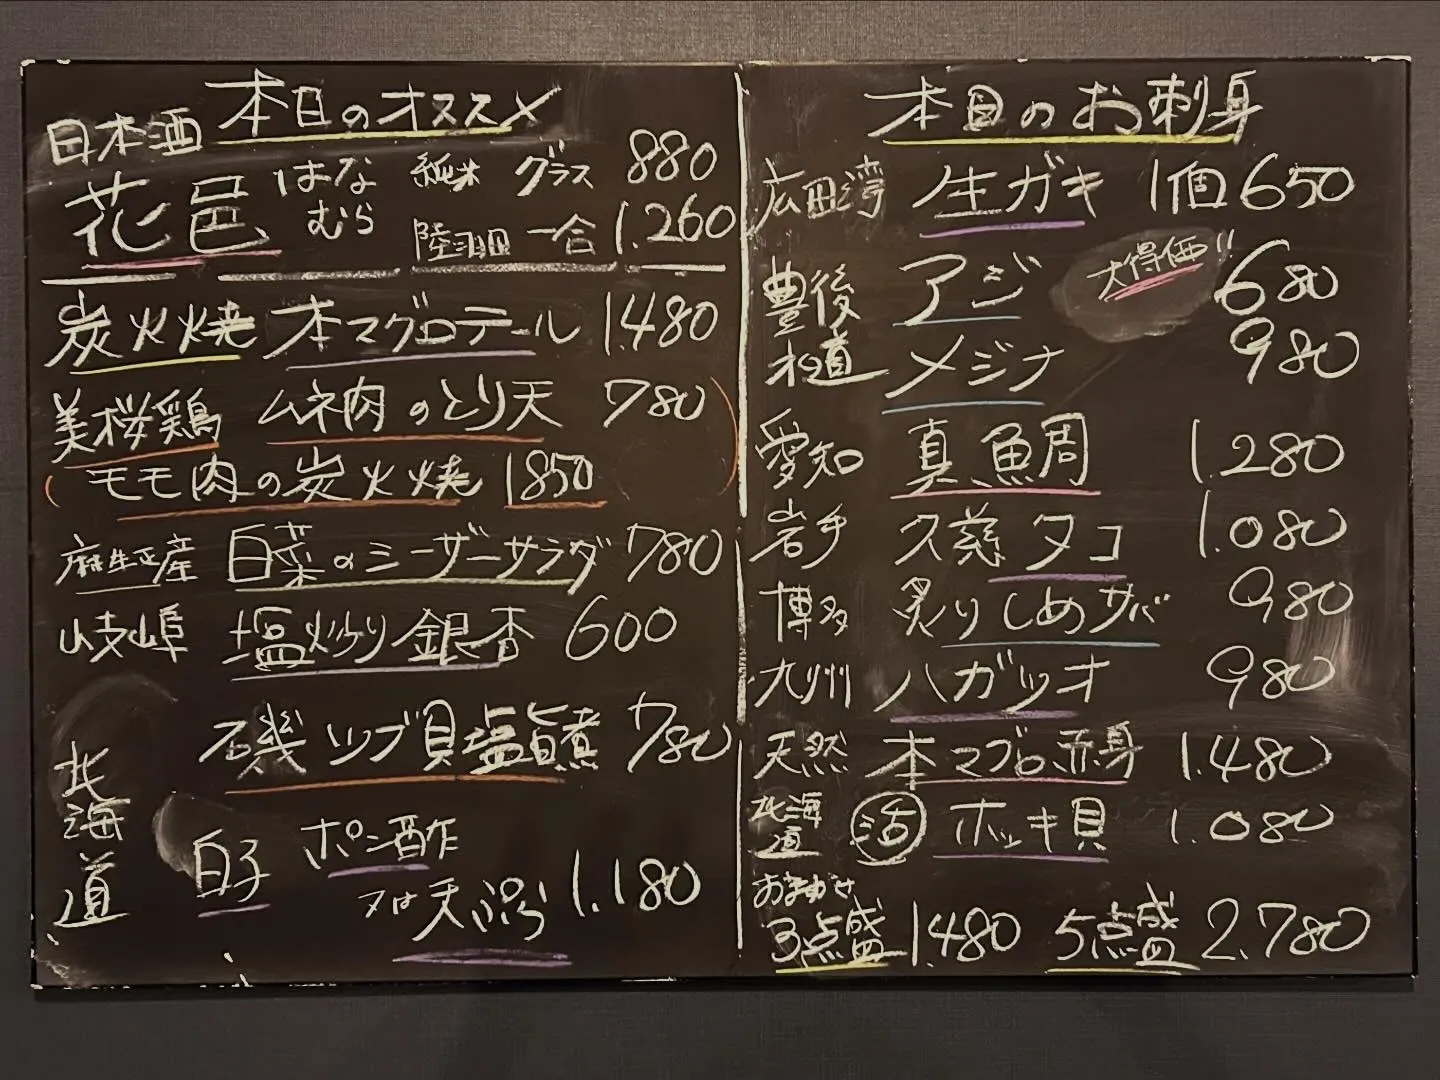 本日のオススメ
日本酒
花邑 はなむら 純米 グラス 880
陸羽田 一合 1.260
炭火焼 本マグロテール 1480
美桜鶏 ムネ肉のとり天 780
モモ肉の炭火焼 1850
麻生正産 白菜のシーザーサラダ 780
岐阜 塩炒り銀杏 600
北海道
磯ツブ貝塩旨煮 780
白子 ポン酢
又は天ぷら 1.180
本日のお刺身
広田湾 生ガキ 1個 650
豊後水道 アジ 大得価!! 680
メジナ 980
愛知 真鯛 1.280
岩手 久慈タコ 1.080
博多 炙りしめサバ 980
九州 ハガツオ 980
天然 本マグロ赤身 1.480
北海道 活 ホッキ貝 1.080
おまかせ
3点盛 1480 5点盛 2.780